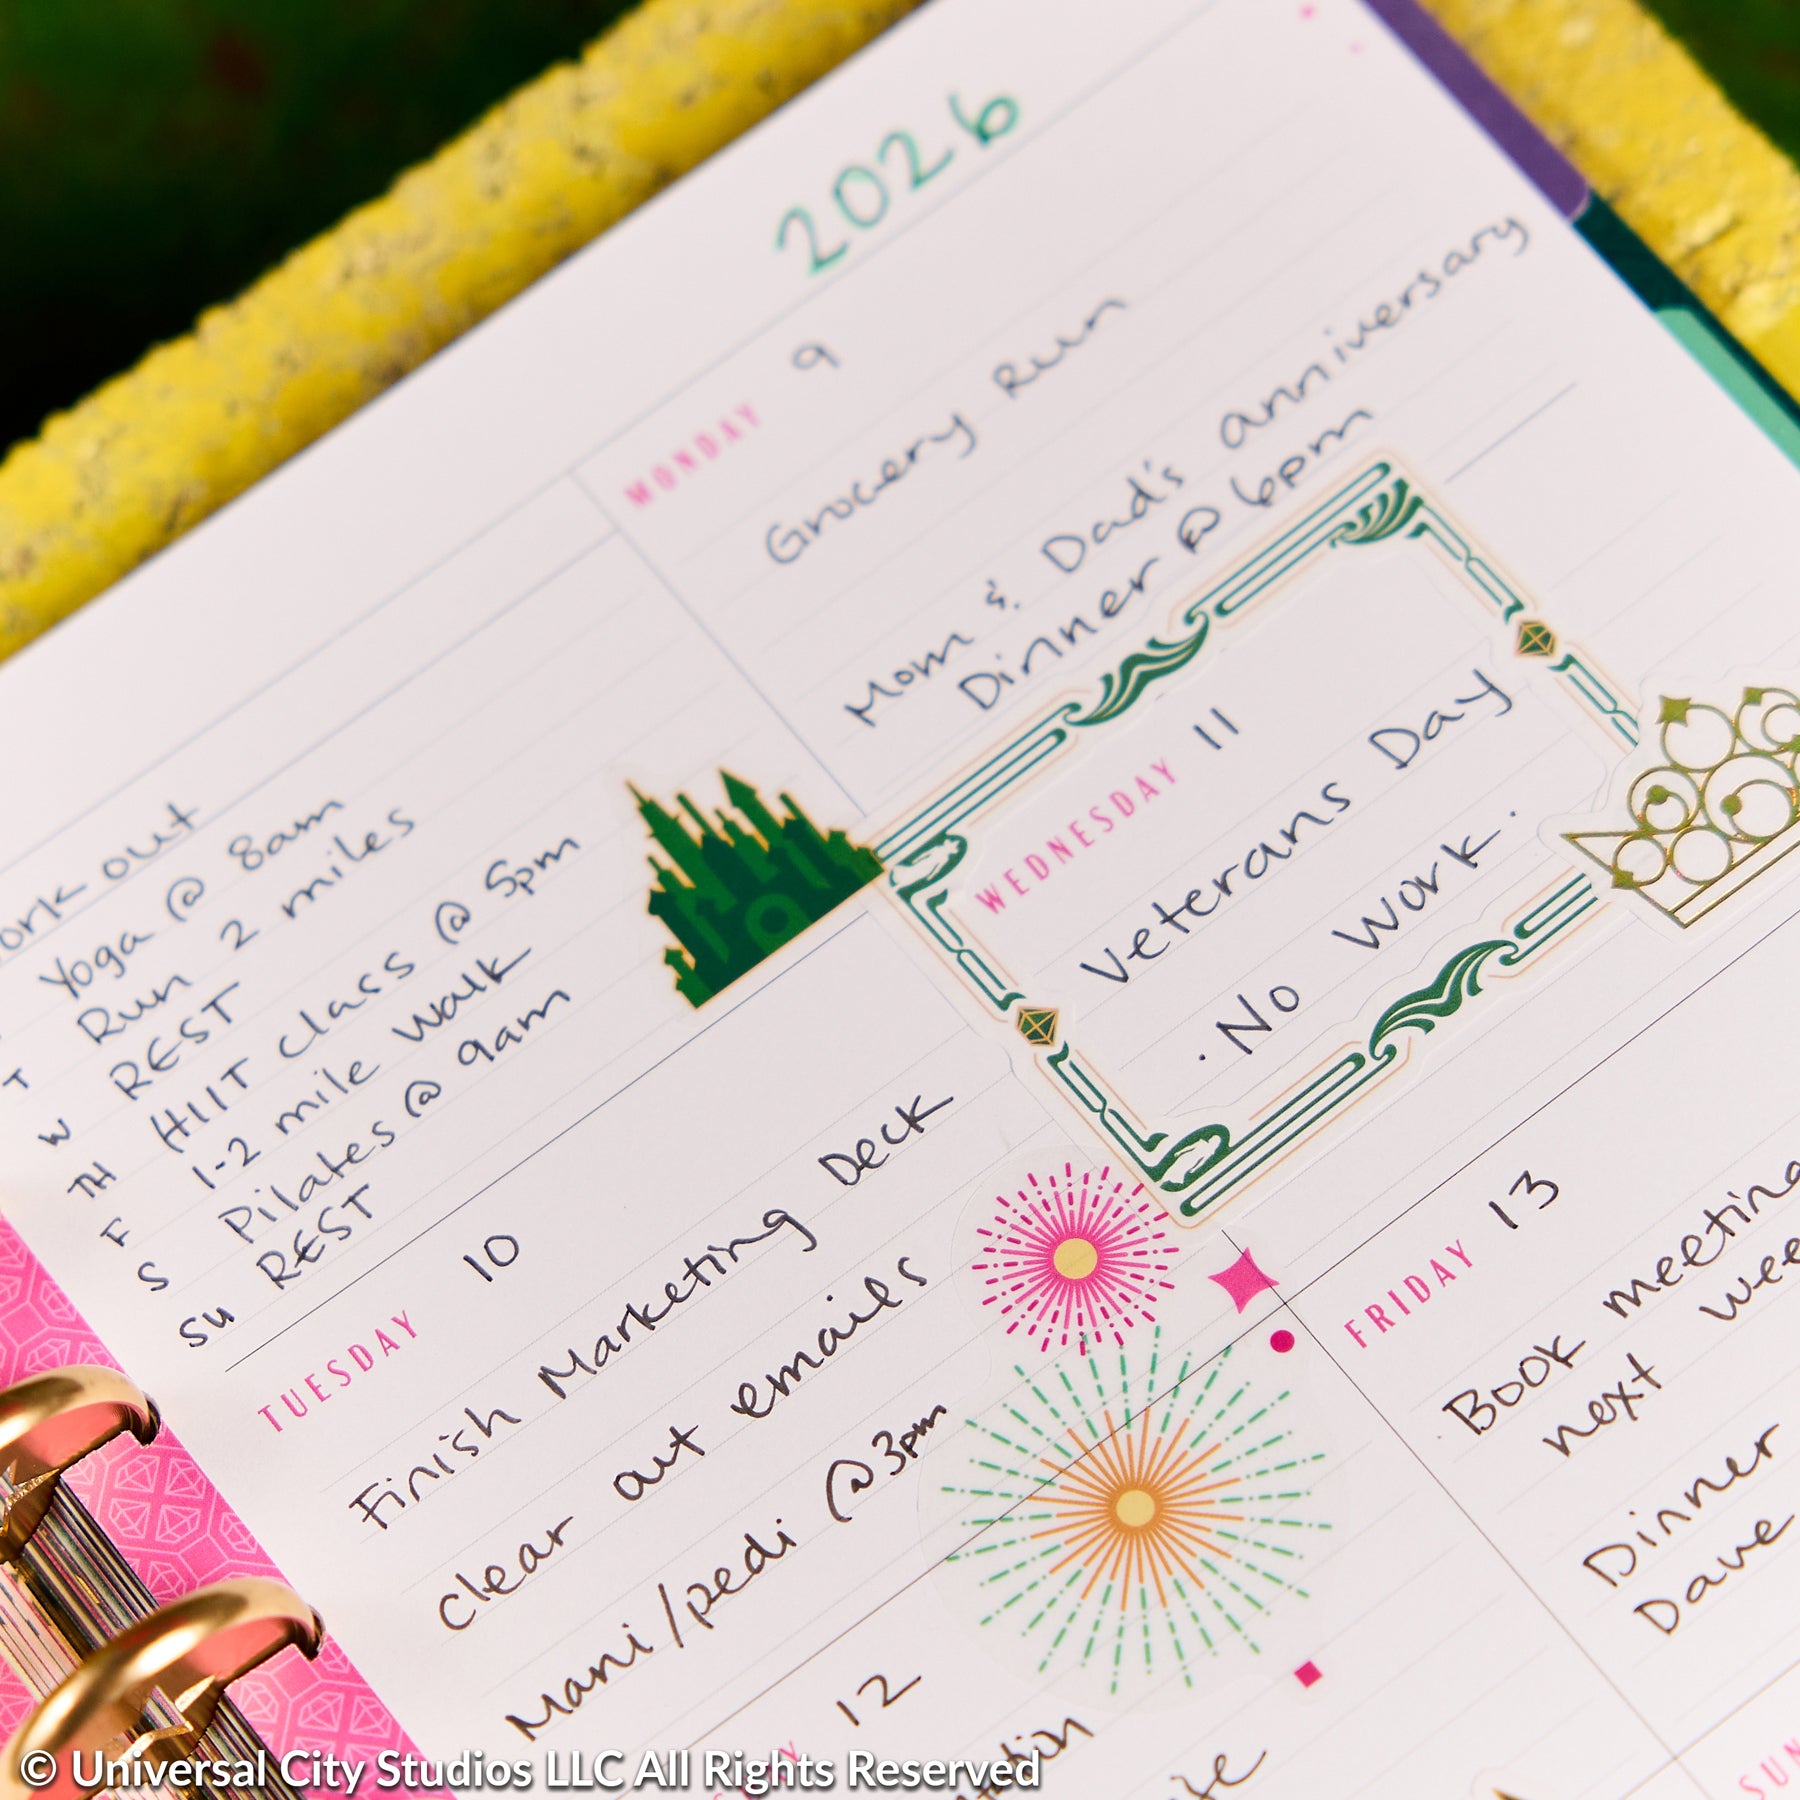 2026
work out
Yoga @ 8am
T Run 2 miles
W REST
TH HIIT class @ 5pm
F 1-2 mile walk
S Pilates @ 9am
SU REST
MONDAY 9
Grocery Run
Mom & Dad's anniversary
Dinner @ 6pm
TUESDAY 10
Finish Marketing Deck
Clear out emails
Mani/pedi @ 3pm
WEDNESDAY 11
Veterans Day
· No Work.
12
FRIDAY 13
Book meeting
next
Dinner
Dave
© Universal City Studios LLC All Rights Reserved